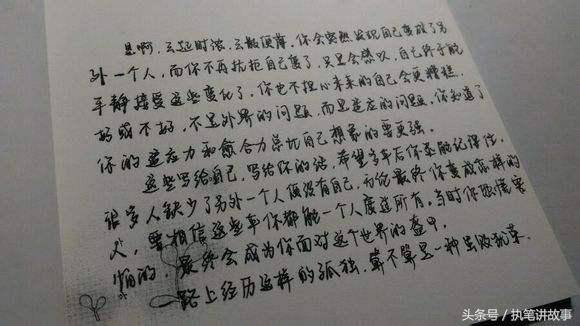 是啊，云起时浓，云散便薄，你会突然发现自己变成了另
外一个人，而你不再抗拒自己变了，只是会感叹，自己终于能
平静接受这些变化了，你也不担心未来的自己会更糟糕，
好或不好，不是外界的问题，而是适应的问题，你知道了
你的适应力和愈合力总比自己想象的要更强。
这些写给自己，写给你的话，希望多年后你还能记得住，
很多人缺少了另外一个人便没有自己，无论最终你变成怎样的
人，要相信这些年你都能一个人度过所有，当时你恐慌害
怕的，最终会成为你面对这个世界的盔甲，
一路上经历这样的孤独，算不算是一种
头条号 / 执笔讲故事